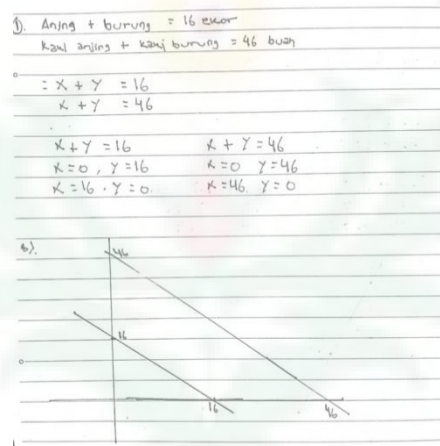 1). Anjing + burung = 16 ekor
Kaki anjing + kaki burung = 46 buah
= X + Y = 16
X + Y = 46
X + Y = 16 X + Y = 46
X = 0, Y = 16 X = 0 Y = 46
X = 16. Y = 0. X = 46. Y = 0
b).
46
16
16
46